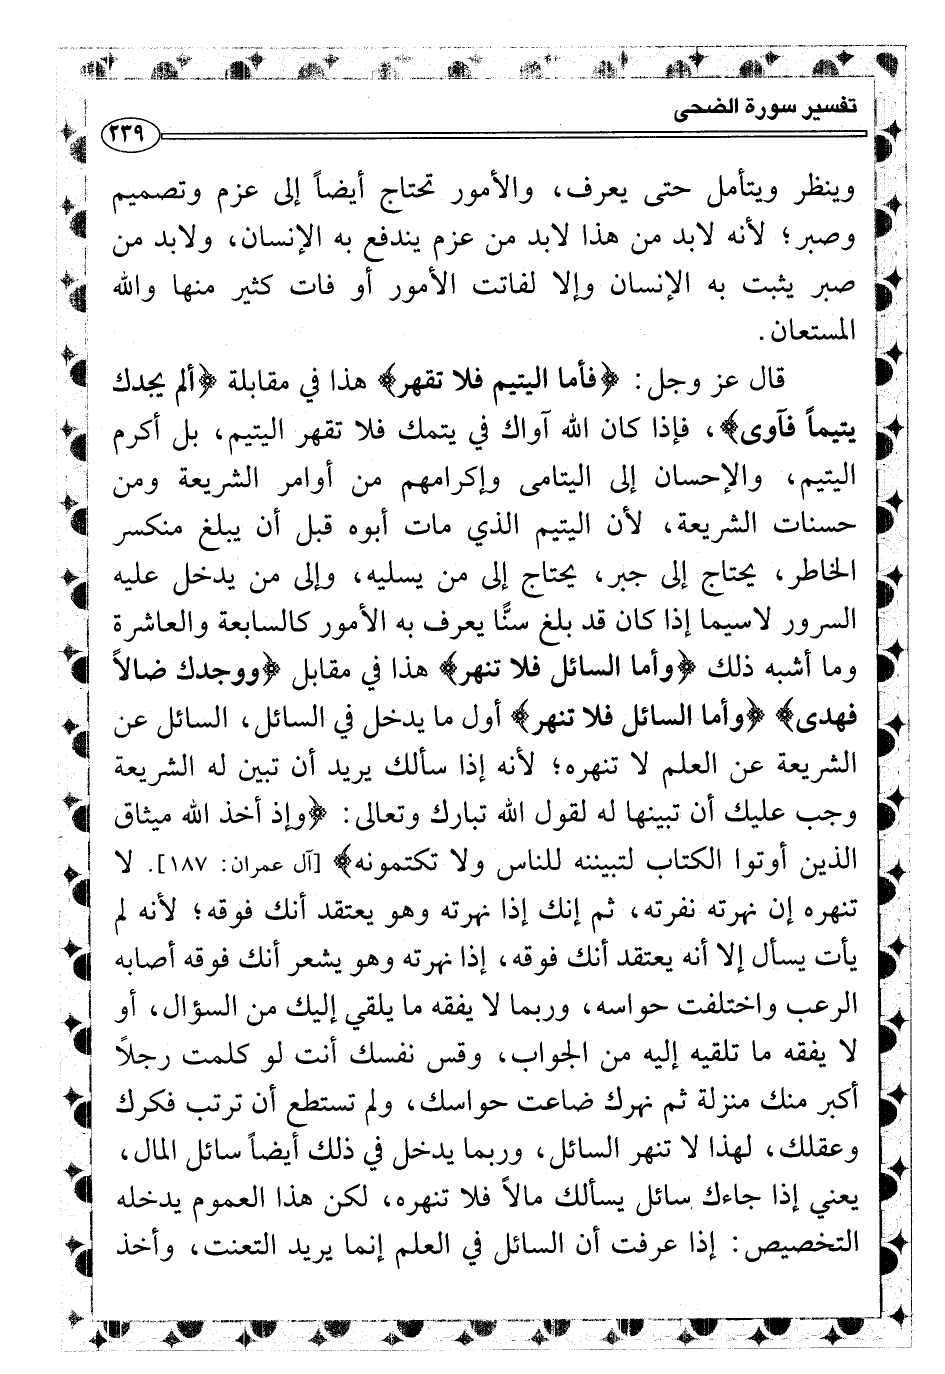 تفسير سورة الضحى
٢٣٩
وينظر ويتأمل حتى يعرف، والأمور تحتاج أيضاً إلى عزم وتصميم
وصبر؛ لأنه لابد من هذا لابد من عزم يندفع به الإنسان، ولابد من
صبر يثبت به الإنسان وإلا لفاتت الأمور أو فات كثير منها والله
المستعان.
قال عز وجل: ﴿فأما اليتيم فلا تقهر﴾ هذا في مقابلة ﴿ألم يجدك
يتيماً فآوى﴾، فإذا كان الله آواك في يتمك فلا تقهر اليتيم، بل أكرم
اليتيم، والإحسان إلى اليتامى وإكرامهم من أوامر الشريعة ومن
حسنات الشريعة، لأن اليتيم الذي مات أبوه قبل أن يبلغ منكسر
الخاطر، يحتاج إلى جبر، يحتاج إلى من يسليه، وإلى من يدخل عليه
السرور لاسيما إذا كان قد بلغ سنًّا يعرف به الأمور كالسابعة والعاشرة
وما أشبه ذلك ﴿وأما السائل فلا تنهر﴾ هذا في مقابل ﴿ووجدك ضالاً
فهدى﴾ ﴿وأما السائل فلا تنهر﴾ أول ما يدخل في السائل، السائل عن
الشريعة عن العلم لا تنهره؛ لأنه إذا سألك يريد أن تبين له الشريعة
وجب عليك أن تبينها له لقول الله تبارك وتعالى: ﴿وإذ أخذ الله ميثاق
الذين أوتوا الكتاب لتبيننه للناس ولا تكتمونه﴾ [آل عمران: ١٨٧]. لا
تنهره إن نهرته نفرته، ثم إنك إذا نهرته وهو يعتقد أنك فوقه؛ لأنه لم
يأت يسأل إلا أنه يعتقد أنك فوقه، إذا نهرته وهو يشعر أنك فوقه أصابه
الرعب واختلفت حواسه، وربما لا يفقه ما يلقي إليك من السؤال، أو
لا يفقه ما تلقيه إليه من الجواب، وقس نفسك أنت لو كلمت رجلاً
أكبر منك منزلة ثم نهرك ضاعت حواسك، ولم تستطع أن ترتب فكرك
وعقلك، لهذا لا تنهر السائل، وربما يدخل في ذلك أيضاً سائل المال،
يعني إذا جاءك سائل يسألك مالاً فلا تنهره، لكن هذا العموم يدخله
التخصيص: إذا عرفت أن السائل في العلم إنما يريد التعنت، وأخذ